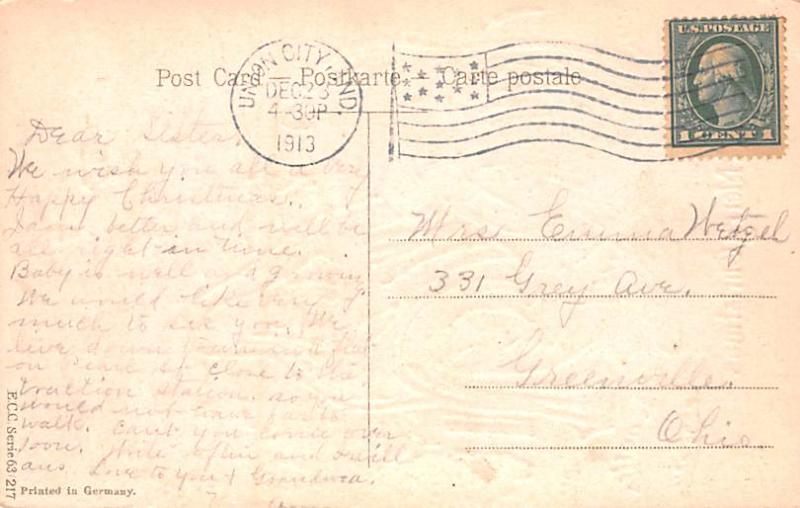 Post Card — Postkarte — Carte postale
UNION CITY, IND.
DEC 23
4-30P
1913
U.S. POSTAGE
1 CENT 1
Dear Sister,
We wish you all a very
Happy Christmas.
I am better and will be
all right in time.
Baby is well and growing
We would like very
much to see you. We
live down town in a flat
on Pearl St close to the
traction station. so you
would not have far to
walk. Cant you come over
soon. Write often and I will
ans. Love to you & Grandma.
Mrs Emma Wetzel
331 Grey Ave.
Greenville.
Ohio
E.C.C. Serie 63/217
Printed in Germany.